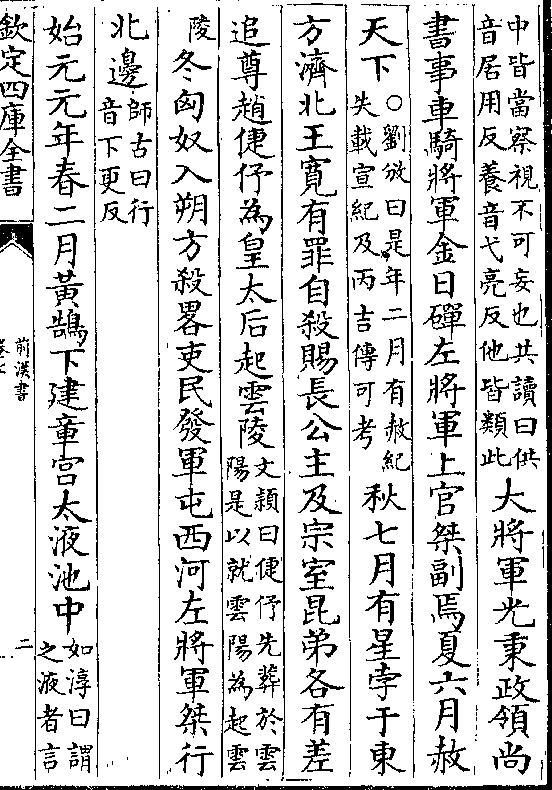 中皆當察視不可妄也共讀曰供
音居用反養音弋亮反他皆類此
大將軍光秉政領尚
書事車騎將軍金日磾左將軍上官桀副焉夏六月赦
天下
○劉攽曰是年二月有赦紀
失載宣紀及丙吉傳可考
秋七月有星孛于東
方濟北王寬有罪自殺賜長公主及宗室昆弟各有差
追尊趙倢伃為皇太后起雲陵
文頴曰倢伃先葬於雲
陽是以就雲陽為起雲
陵
冬匈奴入朔方殺畧吏民發軍屯西河左將軍桀行
北邊
師古曰行
音下更反
始元元年春二月黃鵠下建章宮太液池中
如淳曰謂
之液者言
欽定四庫全書
前漢書
卷七
二